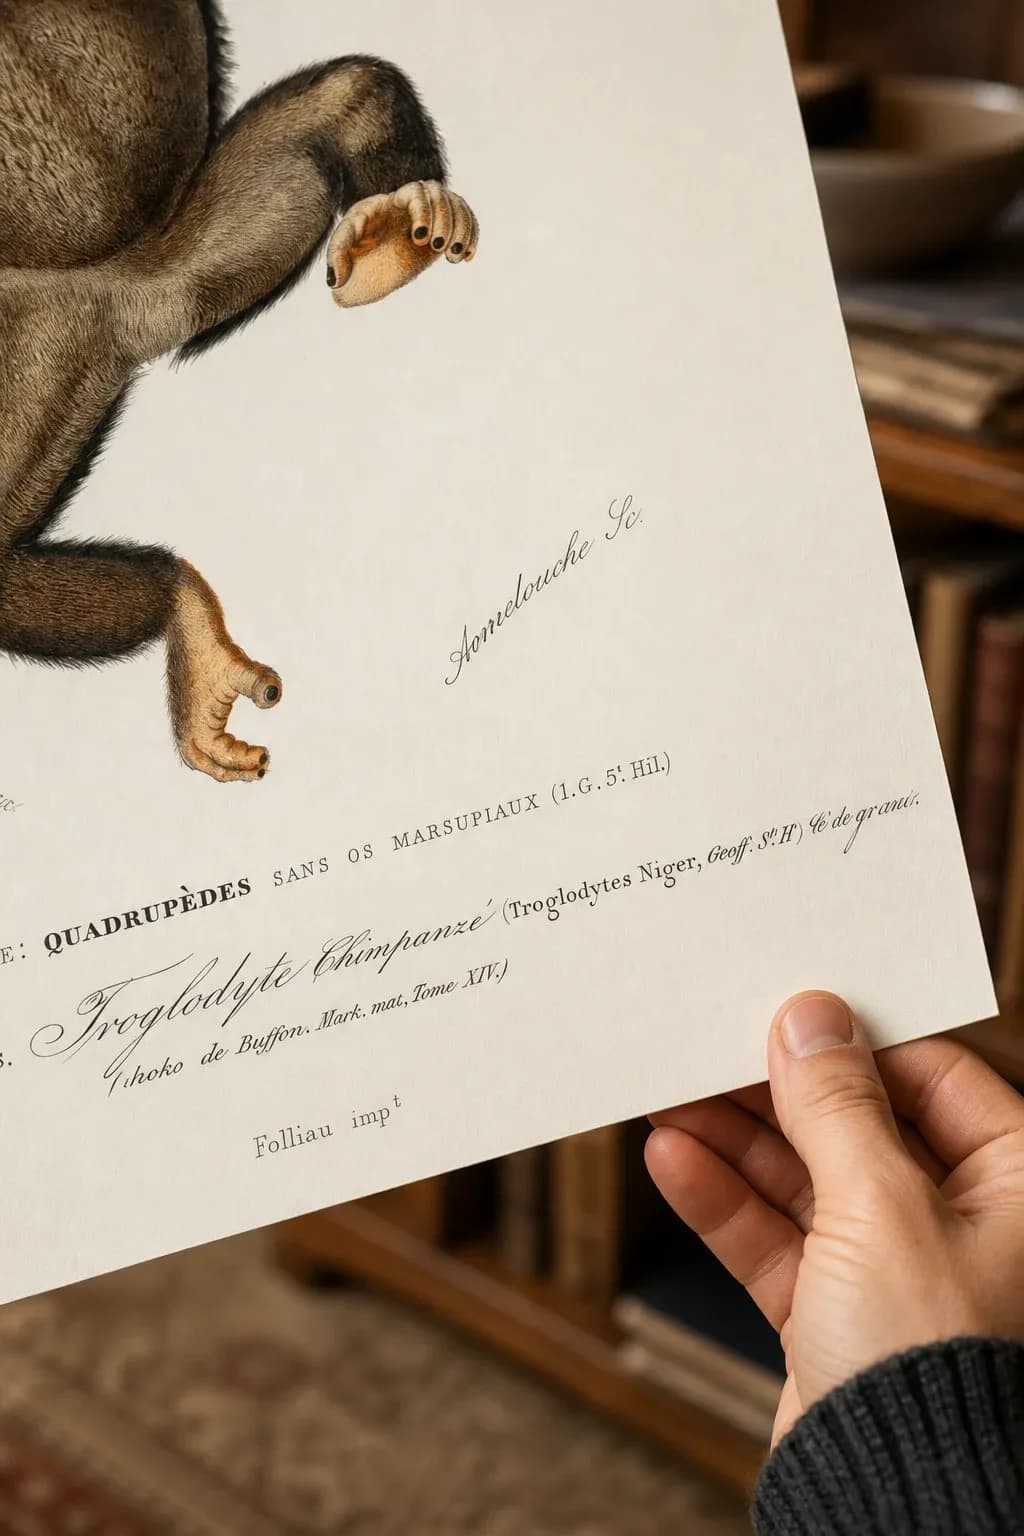 Aomelouche Sc.
E: QUADRUPÈDES SANS OS MARSUPIAUX (1.G. 5ᵗ. Hil.)
s. Troglodyte Chimpanzé (Troglodytes Niger, Geoff. Sᵗ. H) de grand.
hoko de Buffon. Mark. mat, Tome XIV.)
Folliau impᵗ